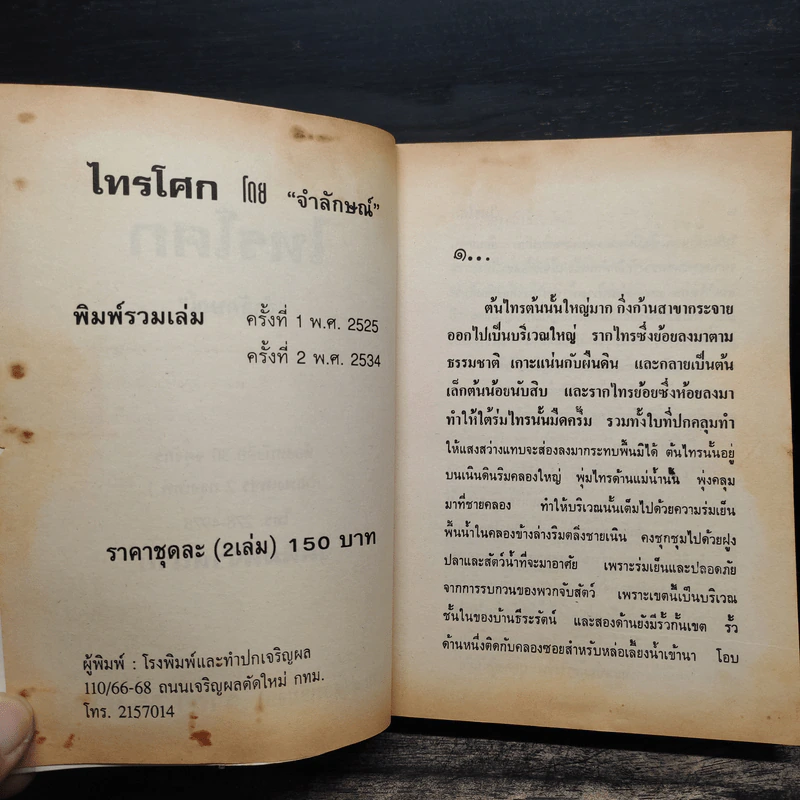 ไทรโศก โดย “จำลักษณ์”
พิมพ์รวมเล่ม ครั้งที่ 1 พ.ศ. 2525
ครั้งที่ 2 พ.ศ. 2534
ราคาชุดละ (2เล่ม) 150 บาท
ผู้พิมพ์ : โรงพิมพ์และทำปกเจริญผล
110/66-68 ถนนเจริญผลตัดใหม่ กทม.
โทร. 2157014
๑...
ต้นไทรต้นนั้นใหญ่มาก กิ่งก้านสาขากระจาย
ออกไปเป็นบริเวณใหญ่ รากไทรซึ่งย้อยลงมาตาม
ธรรมชาติ เกาะแน่นกับผืนดิน และกลายเป็นต้น
เล็กต้นน้อยนับสิบ และรากไทรย้อยซึ่งห้อยลงมา
ทำให้ใต้ร่มไทรนั้นมืดครึ้ม รวมทั้งใบที่ปกคลุมทำ
ให้แสงสว่างแทบจะส่องลงมากระทบพื้นมิได้ ต้นไทรนั้นอยู่
บนเนินดินริมคลองใหญ่ พุ่มไทรด้านแม่น้ำนนี้ พุ่งคลุม
มาที่ชายคลอง ทำให้บริเวณนั้นเต็มไปด้วยความร่มเย็น
พื้นน้ำในคลองข้างล่างริมตลิ่งชายเนิน คงชุกชุมไปด้วยฝูง
ปลาและสัตว์น้ำที่จะมาอาศัย เพราะร่มเย็นและปลอดภัย
จากการรบกวนของพวกจับสัตว์ เพราะเขตนี้เป็นบริเวณ
ชั้นในของบ้านธีระรัตน์ และสองด้านยังมีรั้วกั้นเขต รั้ว
ด้านหนึ่งติดกับคลองซอยสำหรับหล่อเลี้ยงน้ำเข้านา โอบ